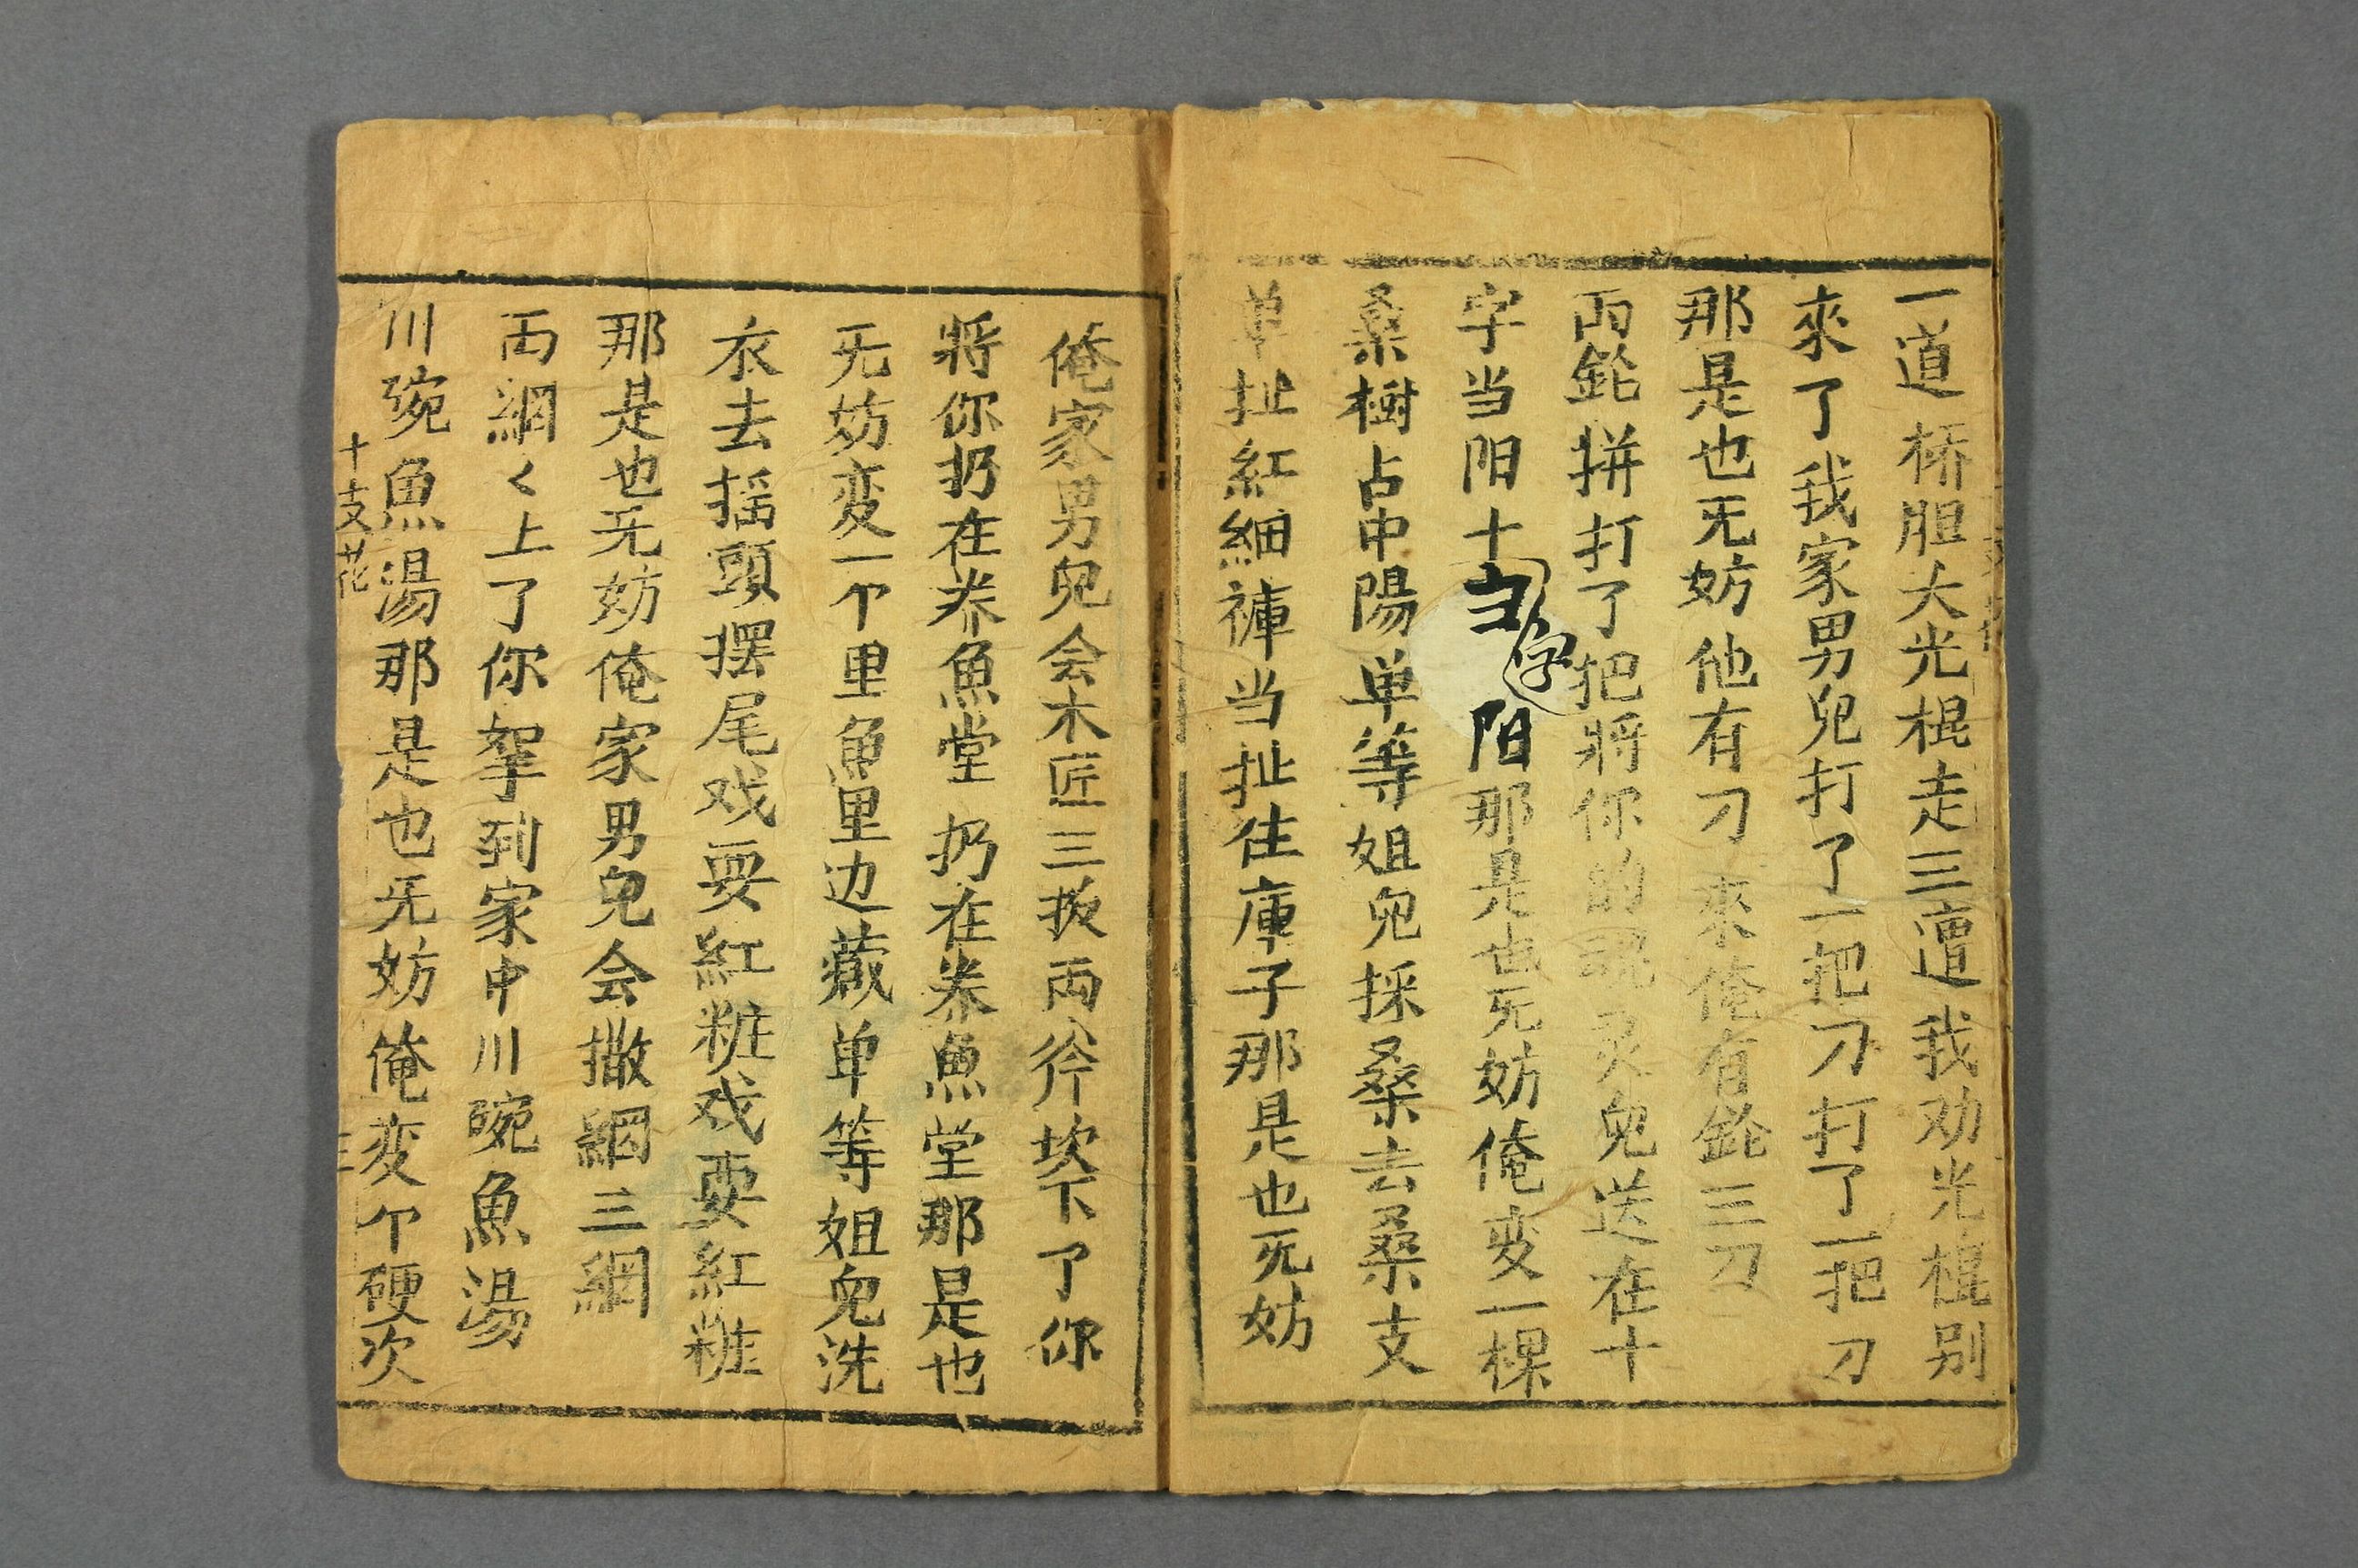 一道桥胆大光棍走三遭我劝光棍别
來了我家男児打了一把刀打了一把刀
那是也旡妨他有刀來俺有鈚三刀
両鈚拼打了把將你的魂灵児送在十
字当阳十字当阳那是也旡妨俺变一棵
桑樹占中陽单等姐児採桑去桑支
单扯紅細褲当扯住庫子那是也旡妨
俺家男児会木匠三扳両斧坎下了你
將你扔在养魚堂扔在养魚堂那是也
旡妨变一个里魚里边藏单等姐児洗
衣去摇頭摆尾戏耍紅粧戏耍紅粧
那是也旡妨俺家男児会撒網三網
両網〻上了你拏到家中川碗魚湯
川碗魚湯那是也旡妨俺变个硬次
十支花